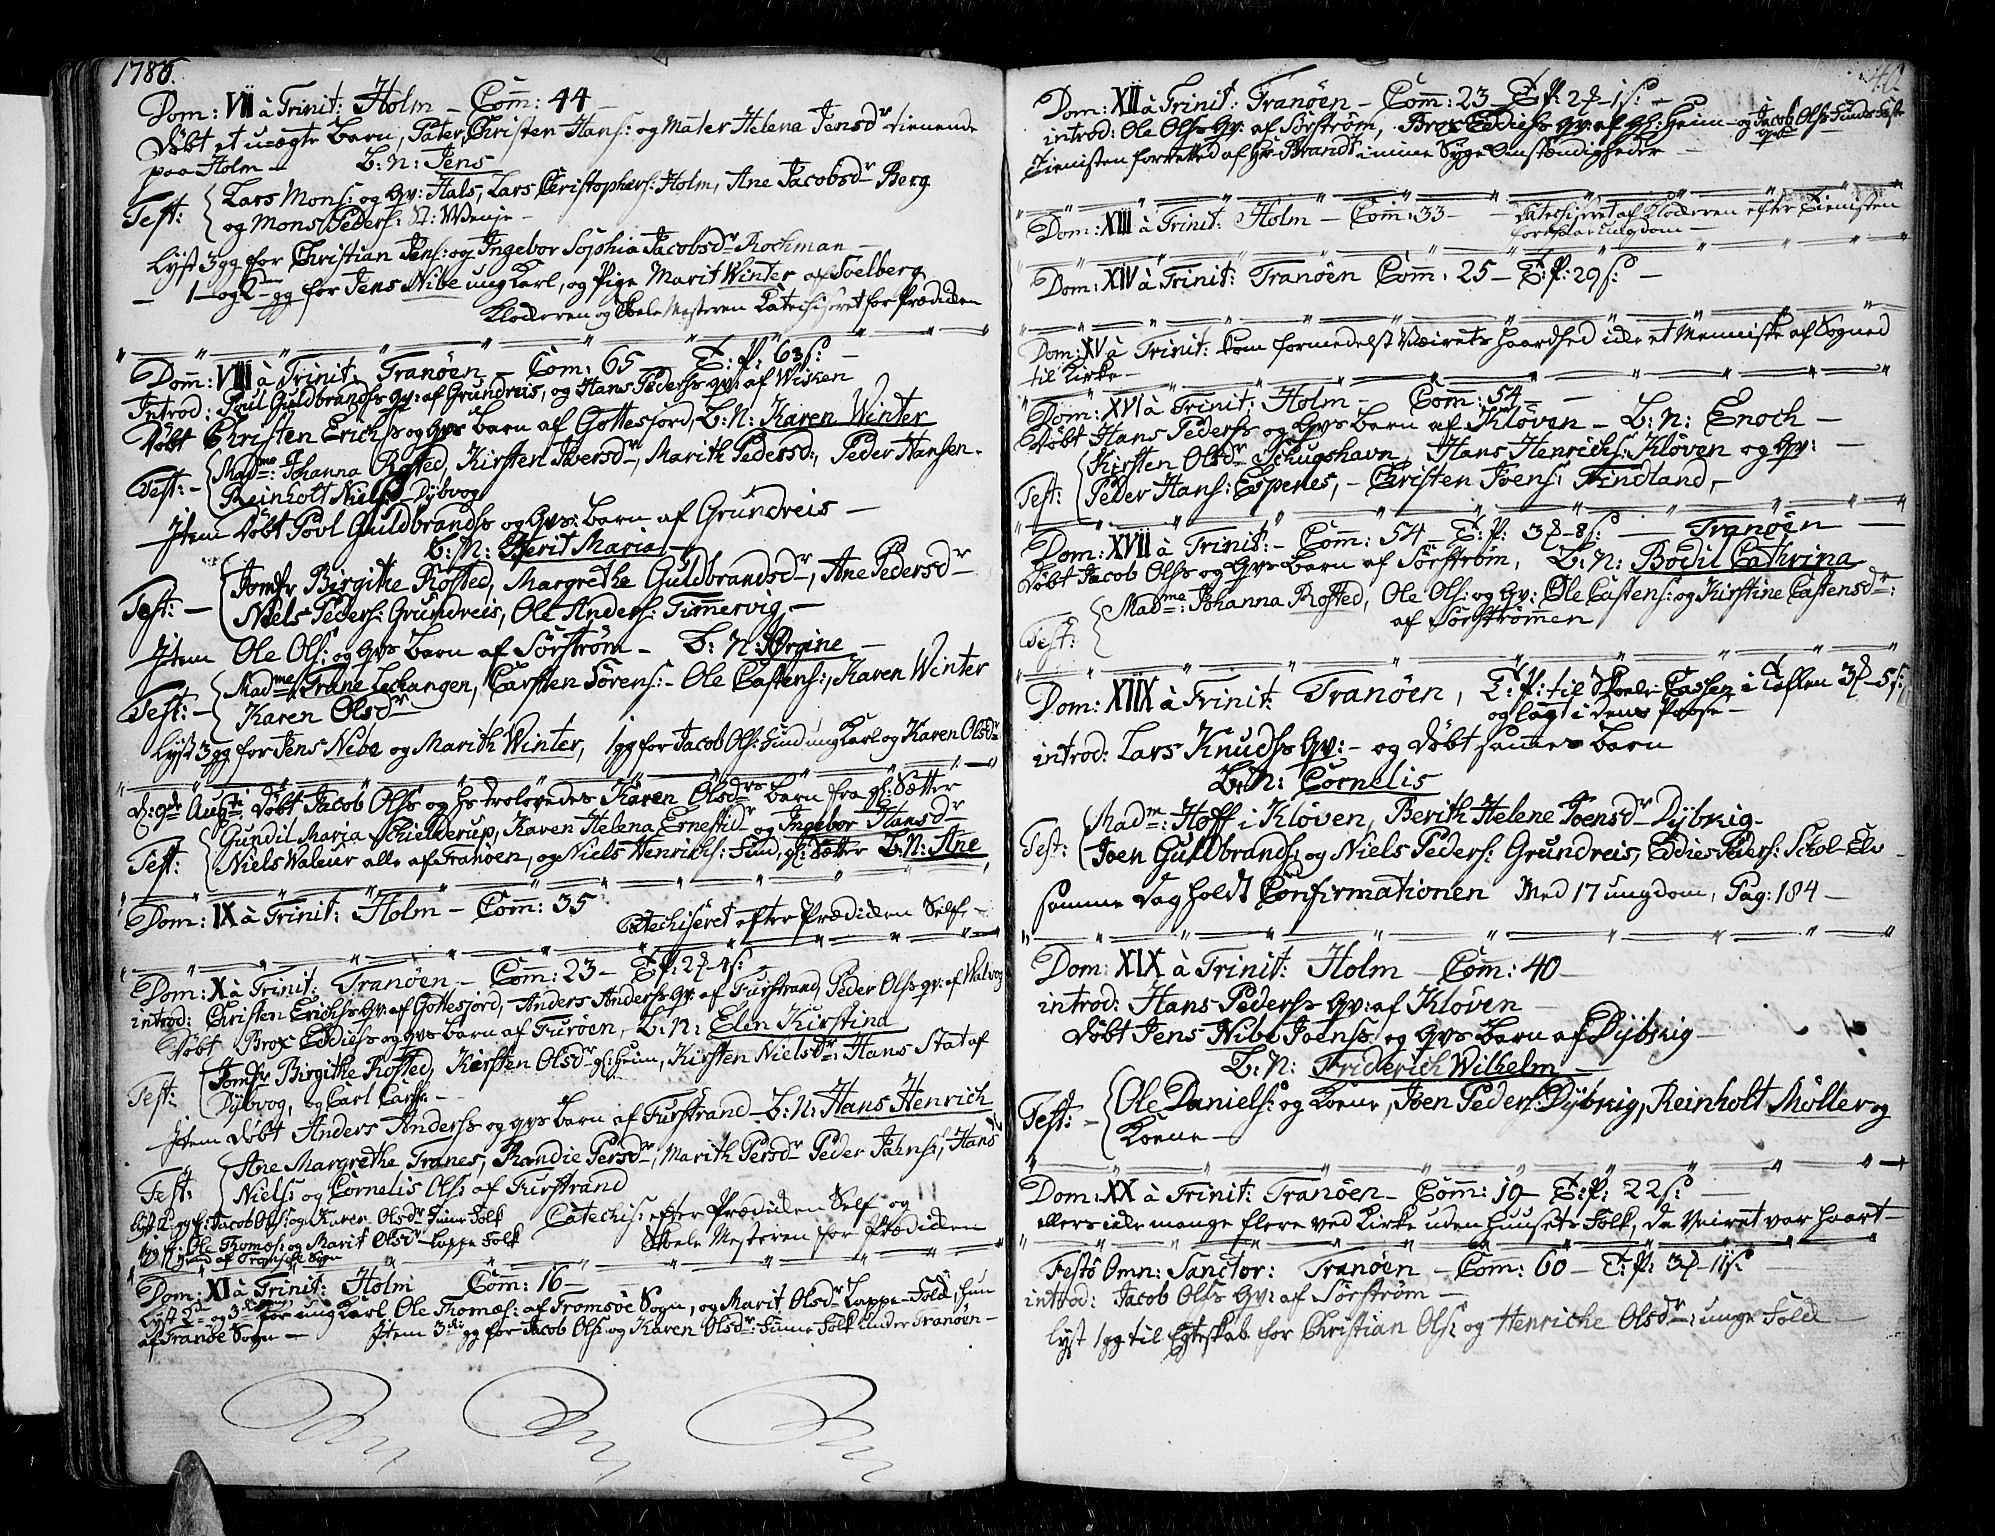 1786.
Dom: VII à Trinit: Holm – Com̄: 44 –
Döbt et uægte barn, Pater, Christen Hans: og Mater Helena Jensdr tienende
paa Holm – B: N: Jens
Test: Lars Mons: og Gv: Hals, Lars Christophers: Holm, Ane Jacobsdr Berg
og Mons Peders: St: Wenje –
Lyst 3 gg for Christian Jens: og Ingebor Sophia Jacobsdr Rochman –
– 1– og 2– gg for Jens Nibe ung Karl, og Pige Marit Winter af Soelberg
Klocheren og Skole Mesteren Catechiseret for Prædiken
Dom̄: VIII à Trinit: Tranöen – Com: 65 – T: P: 63 s: –
Introd: Poul Guldbrandss Gv: af Grundreis, og Hans Pederss gv: af Wisken
Döbt Christen Erichss og Gvs barn af Gottesjord, B: N: Karen Winter
Test: – Madme: Johanna Rosted, Kirsten Iversdr, Marith Pedersd:, Peder Hansen.
Reinholt Niels: Dybvog
Item Döbt Povl Guldbrandss og Gvs: barn af Grundreis –
B: N: Berit Maria –
Test: – Jomfr Birgithe Rosted, Margrethe Guldbrandsdr, Ane Pedersdr
Niels Peders: Grundreis, Ole Anders: Tim̄ervig, –
Item Ole Ols: og Gvs barn af Sörström – B: N: Örgine –
Test: – Madme Trane Lechangen, Carsten Sörens: – Ole Castens:, Karen Winter
Karen Olsdr
Lyst 3 gg for Jens Nibe og Marith Winter, 1 gg for Jacob Ols: Sund ung Karl og Karen Olsdr
d: 9de Augti: Döbt Jacob Olss og hs trolovedes Karen Olsdrs barn fra gl: Sætter
Test: Gundil Maria Schielderup, Karen Helena Ernestidr og Ingebor Hansdr
Niels Waleur alle af Tranöen, og Niels Henrichs: Sund, gl: Sætter B: N: Ane
Dom: IX à Trinit: Holm – Com̄: 35
Catechiseret efter Prædiken Self, –
Dom: X à Trinit: Tranöen – Com: 23 – T: P: 2 – 4 s:
introd: Christen Erichss Gv: af Gottesjord, Anders Anderss Gv: af Furstrand, Peder Olss gv: af Walvog
Döbt Brox Eddiess og gvs barn af Furöen, B: N: Elen Kirstina
Test: Jomfr Birgithe Rosted, Kirsten Olsdr gl: Heim, Kirsten Nielsdr: Hans Stat af
Dybvog, og Carl Carls: –
Item döbt Anders Anderss og gvs barn af Furstrand – B: N: Hans Henrich
Test: Ane Margrethe Tranes, Randie Persdr, Marith Persdr Peder Jahns:, Hans
Niels: og Cornelis Ols: af Furstrand
lyst 2 gg f: Jacob Ols: og Karen Olsdr Finne Folk Catechis: efter Prædiken Self og
1 gg f: Ole Thomas: og Marit Olsdr Lappe Folk Skole Mesteren for Prædiken
af Tromsöe Sogn
Dom: XI à Trinit: Holm Com̄: 16 –
Lyst 2– og 3– for ung Karl Ole Thomæs: af Tromsöe Sogn, og Marit Olsdr Lappe-Folk, hun
af Tranöe Sogn – Item 3die gg for Jacob Ols: og Karen Olsdr: Finne Folk under Tranöen –
40.
Dom: XII à Trinit: Tranöen – Com̄: 23 – T: P: 2 – 1 s: –
introd: Ole Olss Gv: af Sörström, Brox Eddiess gv: af gl: Heim – og Jacob Ols: Sunds Feste
Tienisten forretted af Hr Brandt i mine Syge Omstændigheder –
Dom: XIII à Trinit: Holm – Com̄: 33 – Catechiseret af Klockeren efter Tienisten
Dom: XIV à Trinit: Tranöen Com̄: 25 – T: P: 29 s: –
Dom: XV à Trinit: kom formedelst Væirets haardhed icke et Menniske af Sogned
til Kirke –
Dom: XVI à Trinit: Holm – Com̄: 54 – –
Döbt Hans Pederss og Gvs barn af Klöven – B: N: Enoch –
Test: Kirsten Olsdr Schugshavn, Hans Henrichs: Klöven og Gv: –
Peder Hans: Espenes, – Christen Joens: Findland, –
Dom: XVII à Trinit: – Com̄: 54 – T: P: 3 – 8 s: – Tranöen –
Döbt Jacob Olss og Gvs barn af Sörström, B: N: Bodil Cathrina
Test: Madme: Johanna Rosted, Ole Ols: og Gv: Ole Castens: og Kirstine Castensdr:
af Sörströmmen
Dom: XIIX à Trinit: Tranöen, T: P: til Skole-Cassen i Taflen 3 – 5 s:
og lagt i dens Pose –
introd: Lars Knudss Gv: – og Döbt sammes barn
B: N: Cornelis
Test: Madm: Hoff i Klöven, Berith Helene Joensdr Dybvig –
Joen Guldbrands: og Niels Peders: Grundreis, Eddies Peders: Skol-Elv –
samme Dag holdt Confirmationen Med 17 ungdom, Pag: 184 –
Dom: XIX à Trinit: Holm – Com̄: 40 –
introd: Hans Pederss Gv: af Klöven –
Döbt Jens Nibe Joenss: og Gvs barn af Dybvig –
B: N: Friderich Wilhelm –
Test: – Ole Daniels: og Kone, Joen Peders: Dybvig, Reinholt Möller og
Kone –
Dom: XX à Trinit: Tranöen – Com̄: 19 – T: P: 22 s: –
ellers icke mange flere ved Kirke uden huusets Folk, da Veiret var haart
Festo Omn: Sanctor: Tranöen – Com: 60 – T: P: 3 – 11 s: –
introd: Jacob Olss Gv: af Sörström –
lyst 1 gg til Egteskab for Christian Ols: og Henriche Olsdr: unge Folk –